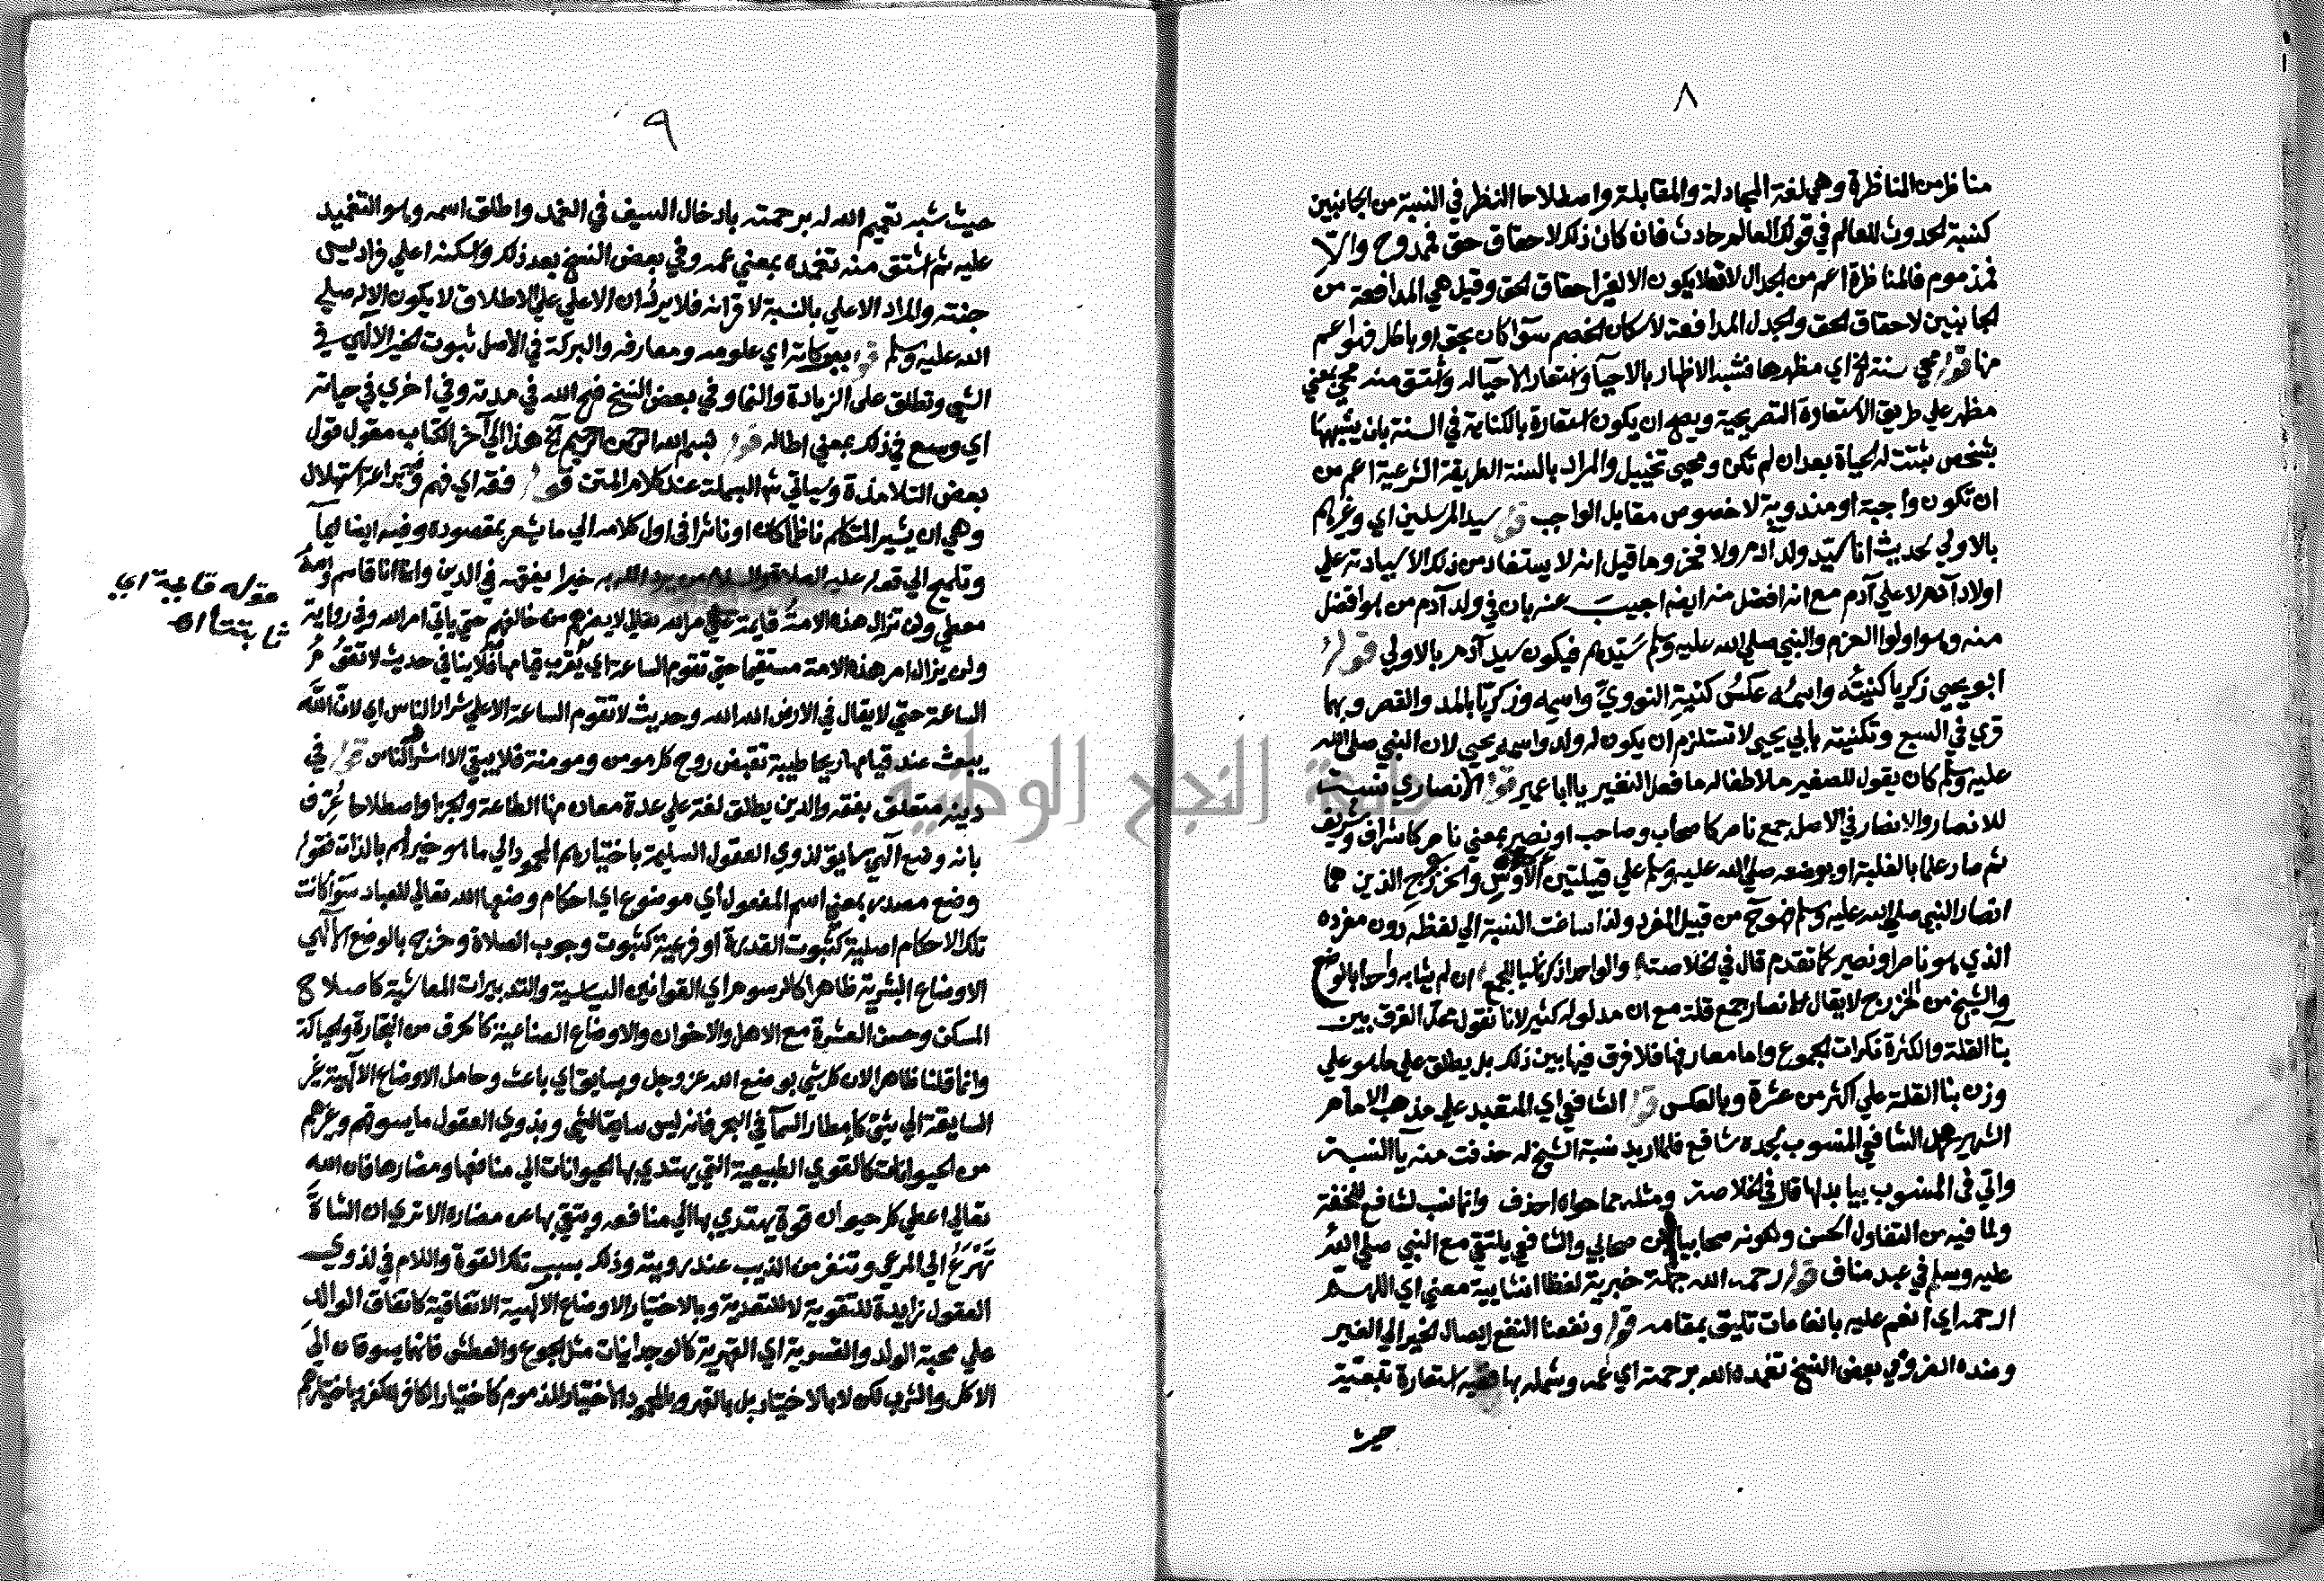 ٨
مناظر من المناظرة وهي لغة المجادلة والمقابلة واصطلاحا النظر في النسبة من الجانبين
كنسبة الحدوث للعالم في قولك العالم حادث فان كان ذلك لاحقاق حق فممدوح والا
فمذموم فالمناظرة اعم من الجدال لانه لا يكون الا لغير احقاق الحق وقيل هي المدافعة من
الجانبين لاحقاق الحق والجدل المدافعة لاسكات الخصم سوآ كان بحق او باطل فهو اعم
منها قوله محيي سنة الخ اي مظهرها فشبه الاظهار بالاحيآ واستعار الاحيآ له واشتق منه محيي بمعني
مظهر علي طريق الاستعارة التصريحية ويصح ان يكون استعارة بالكناية في السنة بان يشبهها
بشخص ثبتت له الحياة بعد ان لم تكن ومحيي تخييل والمراد بالسنة الطريقة الشرعية اعم من
ان تكون واجبة او مندوبة لا خصوص مقابل الواجب قوله سيد المرسلين اي وغيرهم
بالاولي لحديث انا سيد ولد آدم ولا فخر وما قيل انه لا يستفاد من ذلك الا سيادته علي
اولاد آدم لا علي آدم مع انه افضل منه ايضا اجيب عنه بان في ولد آدم من هو افضل
منه وهو اولوا العزم والنبي صلي الله عليه وسلم سيدهم فيكون سيد آدم بالاولي قوله
ابو يحيي زكريا كنيته واسمه عكس كنية النووي واسمه وزكريا بالمد والقصر وبهما
قري في السبع وتكنيته بابي يحيي لا تستلزم ان يكون له ولد واسمه يحيي لان النبي صلي الله
عليه وسلم كان يقول للصغير ملاطفا له ما فعل النغير يا ابا عمير قوله الانصاري نسبة
للانصار والانصار في الاصل جمع ناصر كاصحاب وصاحب او نصير بمعني ناصر كاشراف وشريف
ثم صار علما بالغلبة او بوضعه صلي الله عليه وسلم علي قبيلتين الاوس والخزرج الذين هما
انصار النبي صلي الله عليه وسلم فهو ح من قبيل المفرد ولذا ساغت النسبة الي لفظه دون مفرده
الذي هو ناصر او نصير كما تقدم قال في الخلاصة والواحد اذكر ناسبا للجمع ان لم يشابه واحدا بالوضع
والشيخ من الخزرج لا يقال انصار جمع قلة مع ان مدلوله كثير لانا نقول محل الفرق بين
بنآ القلة والكثرة نكرات الجموع واما معارفها فلا فرق فيها بين ذلك بل يطلق علي ما هو علي
وزن بنا القلة علي اكثر من عشرة وبالعكس قوله الشافعي اي المتعبد علي مذهب الامام
الشهير محمد الشافعي المنسوب لجده شافع فلما اريد نسبة الشيخ له حذفت منه يآ النسبة
واتي في المنسوب بيا بدلها قال في الخلاصة ومثله مما حواه احذف وانما نسب لشافع للخفة
ولما فيه من التفاول الحسن ولكونه صحابيا ابن صحابي والشافعي يلتقي مع النبي صلي الله
عليه وسلم في عبد مناف قوله رحمه الله جملة خبرية لفظا انشايية معني اي اللهم
ارحمه اي انعم عليه بانعامات تليق بمقامه قوله ونفعنا النفع ايصال الخير الي الغير
وضده الضر وفي بعض النسخ تغمده الله برحمته اي عمه وشمله بها ففيه استعارة تبعية
حيث
٩
حيث شبه تعميم الله له برحمته بادخال السيف في الغمد واطلق اسمه وهو التغميد
عليه ثم اشتق منه تغمده بمعني عمه وفي بعض النسخ بعد ذلك واسكنه اعلي فراديس
جنته والمراد الاعلي بالنسبة لاقرانه فلا يرد ان الاعلي علي الاطلاق لا يكون الا له صلي
الله عليه وسلم قوله ببركاته اي علومه ومعارفه والبركة في الاصل ثبوت الخير الالهي في
الشي وتطلق علي الزيادة والنما وفي بعض النسخ فسح الله في مدته وفي اخري في حياته
اي وسع في ذلك بمعني اطاله قوله بسم الله الرحمن الرحيم الخ هذا الي آخر الكتاب مقول قول
بعض التلامذة وسياتي شرح البسملة عند كلام المتن قوله فقه اي فهم وفيه براعة استهلال
وهي ان يشير المتكلم ناظما كان او ناثرا في اول كلامه الي ما يشعر بمقصوده وفيه ايضا ايمآ
وتلميح الي قوله عليه الصلاة والسلام من يرد الله به خيرا يفقهه في الدين وانما انا قاسم والله
معطي ولن تزال هذه الامة قايمة علي امر الله تعالي لا يضرهم من خالفهم حتي ياتي امر الله وفي رواية
ولن يزال امر هذه الامة مستقيما حتي تقوم الساعة اي يقرب قيامها فلا ينافي حديث لا تقوم
الساعة حتي لا يقال في الارض الله الله وحديث لا تقوم الساعة الا علي شرار الناس اي لان الله
يبعث عند قيامها ريحا طيبة تقبض روح كل مومن ومومنة فلا يبقي الا اشر الناس قوله في
دينه متعلق بفقه والدين يطلق لغة علي عدة معان منها الطاعة والجزا واصطلاحا عرف
بانه وضع الهي سايق لذوي العقول السليمة باختيارهم المحمود الي ما هو خير لهم بالذات فقوله
وضع مصدر بمعني اسم المفعول اي موضوع اي احكام وضعها الله تعالي للعباد سوآ كانت
تلك الاحكام اصلية كثبوت القدرة او فرعية كثبوت وجوب الصلاة وخرج بالوضع الالهي
الاوضاع البشرية ظاهرا كالرسوم اي القوانين السياسية والتدبيرات المعاشية كاصلاح
المسكن وحسن العشرة مع الاهل والاخوان والاوضاع الصناعية كالحرف من التجارة والحياكة
وانما قلنا ظاهرا لان كل شي بوضع الله عز وجل وبسايق اي باعث وحامل الاوضاع الالهية غير
السايقة الي شي كامطار السمآ في البحر فانه ليس سايقا لشي وبذوي العقول ما يسوقهم وغيرهم
من الحيوانات كالقوي الطبيعية التي يهتدي بها الحيوانات الي منافعها ومضارها فان الله
تعالي اعطي كل حيوان قوة يهتدي بها الي منافعه ويتقي بها عن مضاره الا تري ان الشاة
تهرع الي المرعي وتنفر من الذيب عند رويته وذلك بسبب تلك القوة واللام في لذوي
العقول زايدة للتقوية لا للتعدية وبالاختيار الاوضاع الالهية الاتفاقية كاتفاق الوالد
علي محبة الولد والقسرية اي القهرية كالوجدانيات مثل الجوع والعطش فانهما يسوقان الي
الاكل والشرب لكن لا بالاختيار بل بالقهر والمحمود الاختيار المذموم كاختيار الكافر الكفر وباختيارهم
قوله قايمة اي
ثابتة اه
النجح الوطنية